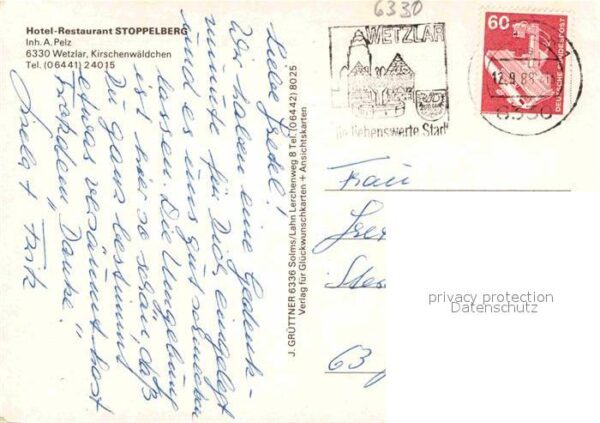 Hotel-Restaurant STOPPELBERG
Inh. A. Pelz
6330 Wetzlar, Kirschenwäldchen
Tel. (06441) 24015
6330
WETZLAR
60
DEUTSCHE BUNDESPOST
Liebe Gretel!
Wir haben eine Gedenk-
minute für Dich eingelegt
und es uns gut schmecken
lassen. Die Umgebung
ist hier so schön, daß
Du ganz bestimmt
etwas versäumt hast
Trotzdem "Danke"!
Fritz
J. GRÜTTNER 6336 Solms/Lahn Lerchenweg 8 Tel. (06442) 8025
Verlag für Glückwunschkarten + Ansichtskarten
Frau
63
privacy protection
Datenschutz